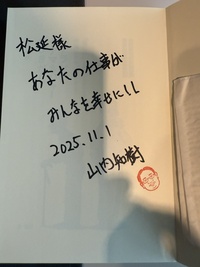 松延様
あなたの仕事が
みんなを幸せにし
2025.11.1
山内知樹